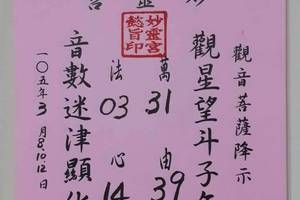 妙靈宮
妙靈宮
懿旨印
觀音菩薩降示
觀星望斗子
萬 31 由 39
法 03 心 14
音數迷津顯
一〇五年3月8.10.12日